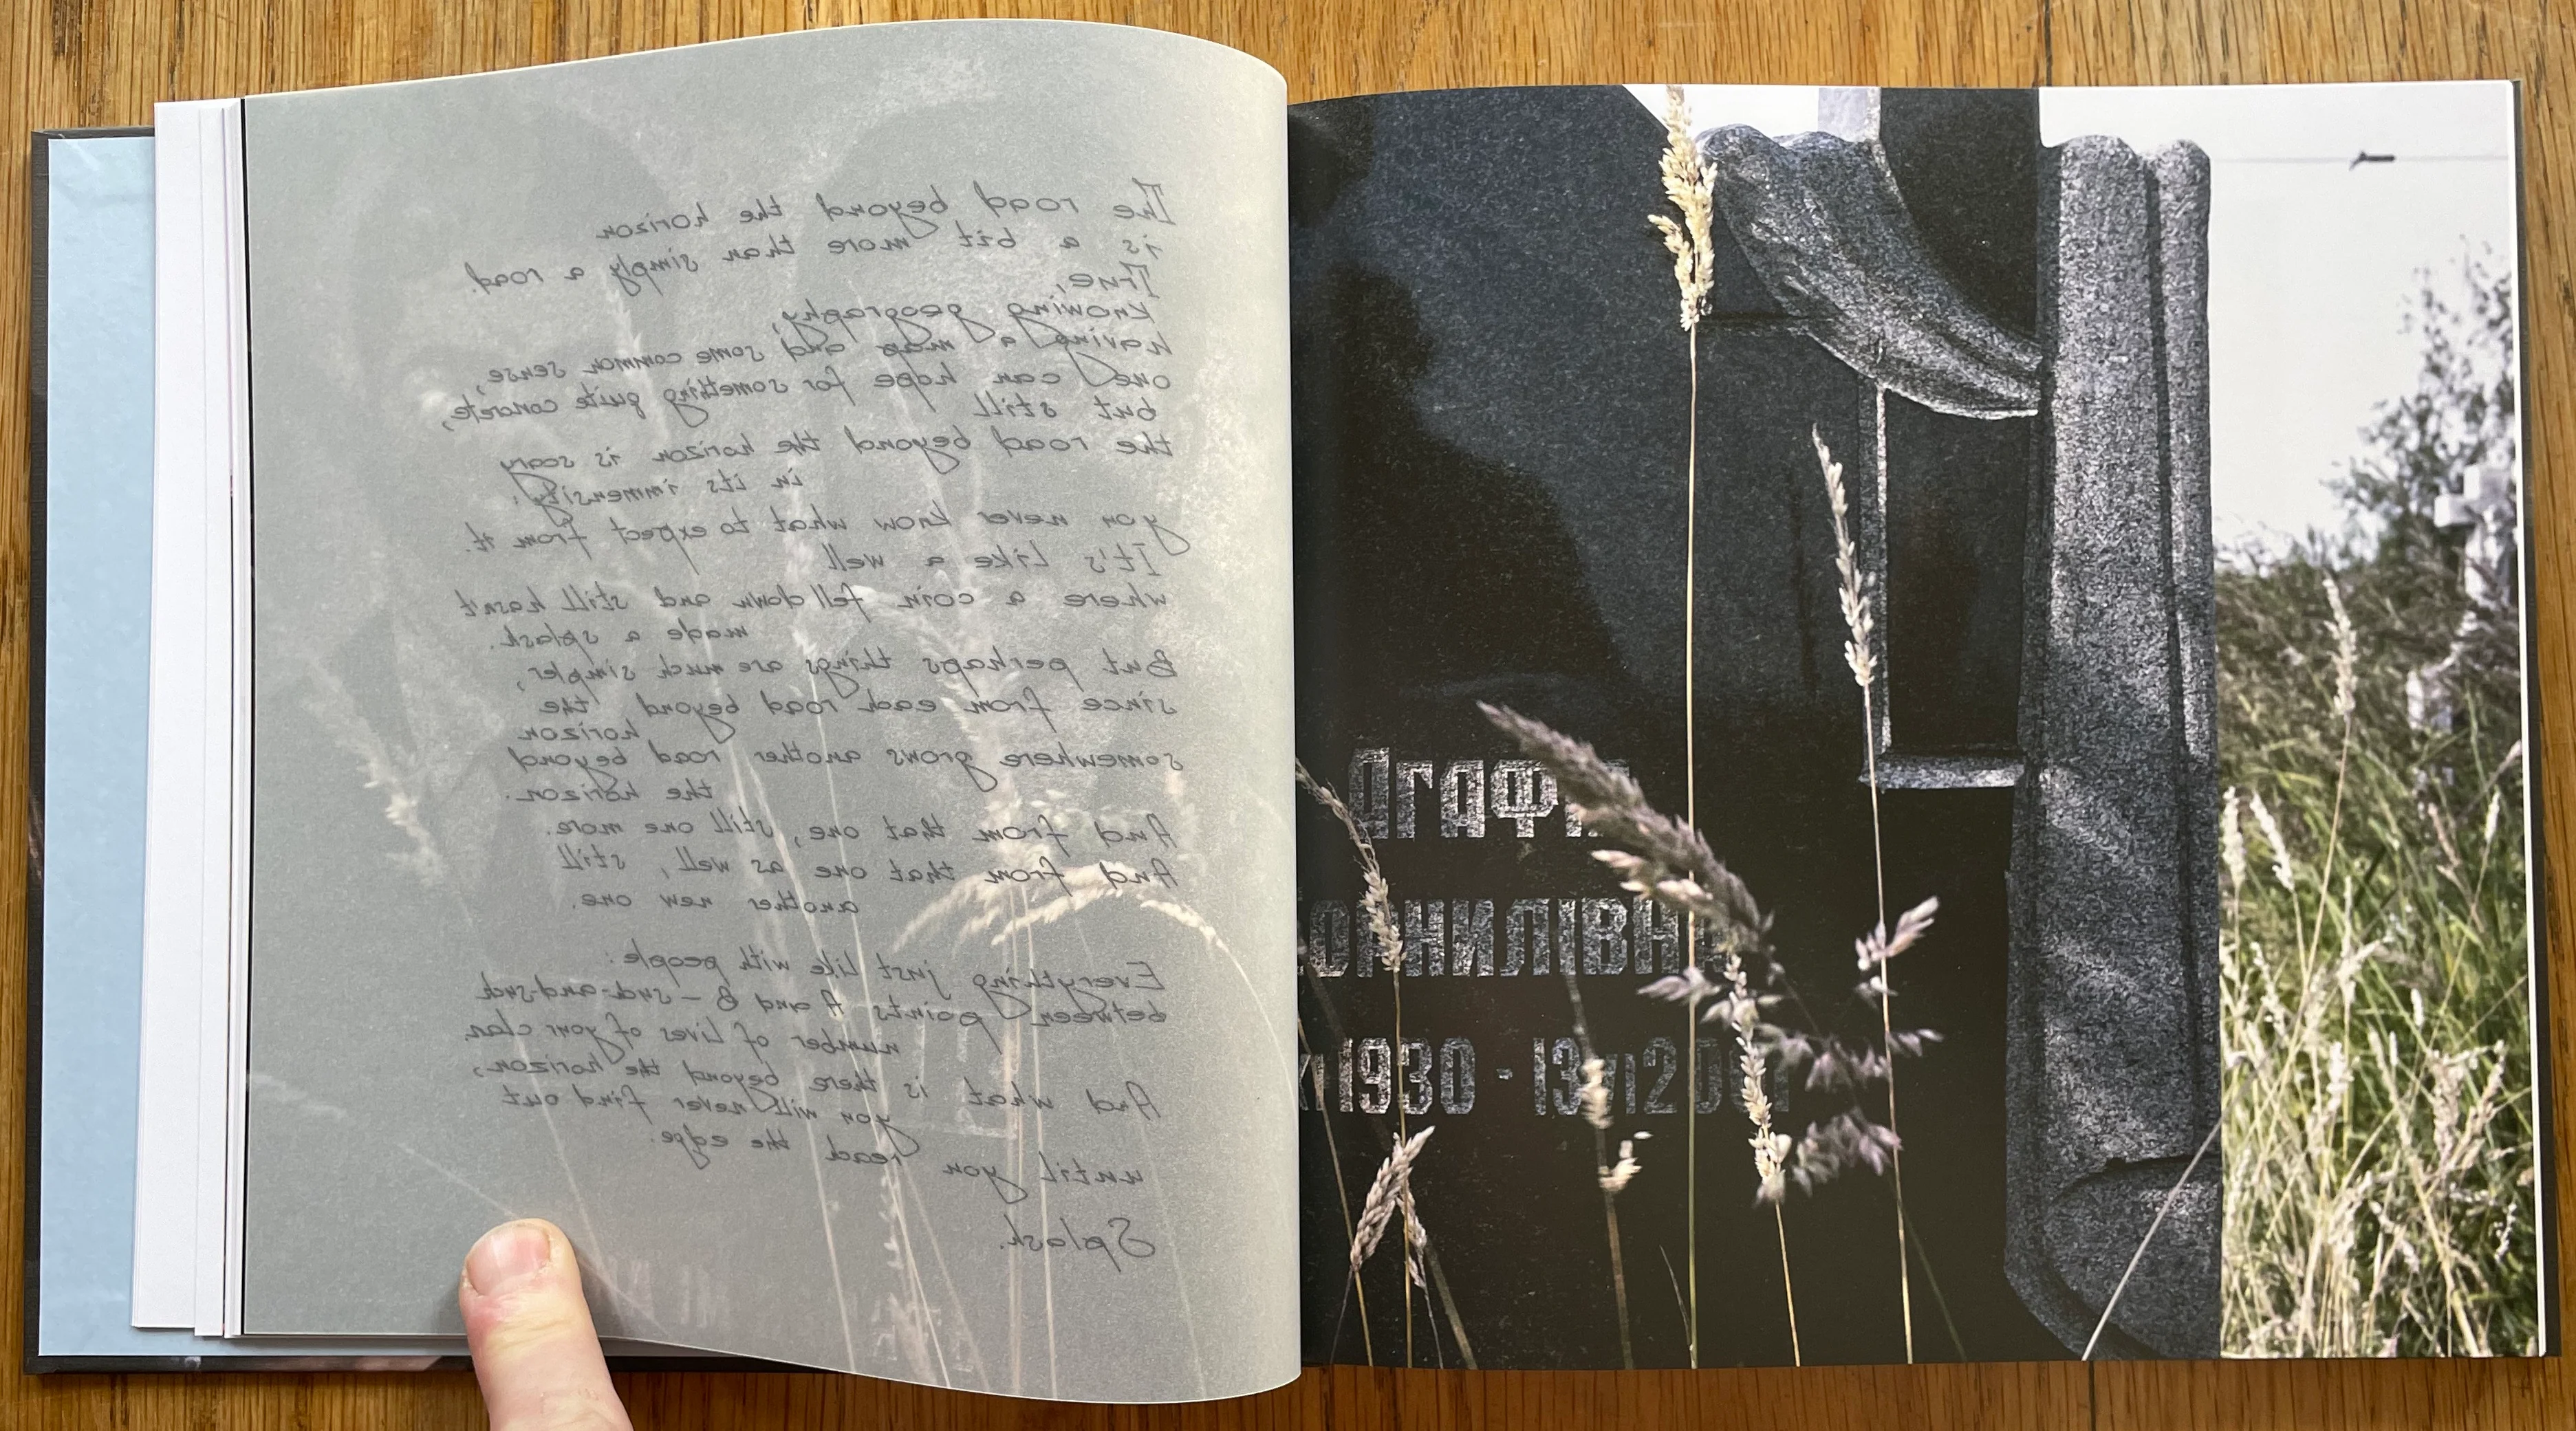 The road beyond the horizon
is a bit more than simply a road.
True,
knowing geography,
having a map and some common sense,
one can hope for something quite concrete,
but still
the road beyond the horizon is scary
in its immensity:
you never know what to expect from it.
It's like a well
where a coin fell down and still hasn't
made a splash.
But perhaps things are much simpler,
since from each road beyond the
horizon
somewhere grows another road beyond
the horizon.
And from that one, still one more.
And from that one as well, still
another new one.
Everything just like with people:
between points A and B – such-and-such
number of lives of your clan.
And what is there beyond the horizon,
you will never find out
until you reach the edge.
Splash.
ОРНИЛІВНА
1930 - 13